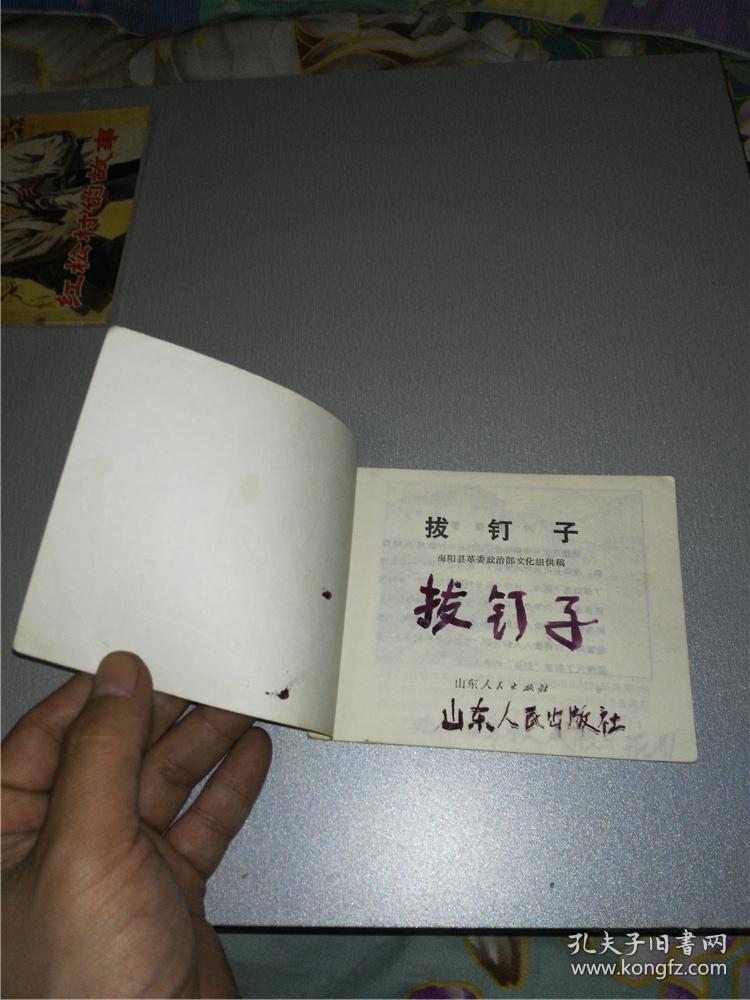 红松村的故事
拔钉子
海阳县革委政治部文化组供稿
拔钉子
山东人民出版社
山东人民出版社
孔夫子旧书网
www.kongfz.com